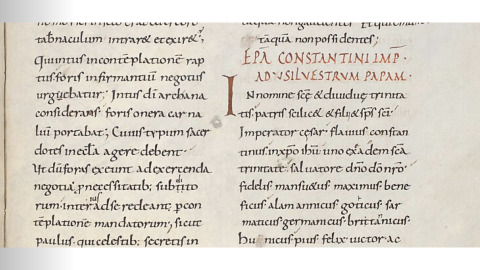 tabnaculum intrare et exire?,
Quintus in contēplatione rap
tus foris infirmantiū negotiis
urguebatur; Intus dī archana
considerans. foris onera car na
liū portabat; Cuius typum sacer
dotes in eccla agere debent.
Ut dū foras exeunt ad exercenda
negotia pro necessitatib; subtīto
rum. inter adse redeant; p con
tēplatione mandatorum; sicut
paulus. qui celestib; secretis in
ta qua non possidentes;
EPA CONSTANTINI IMP·
AD·V SILVESTRVM PAPAM·
IN nomine scē & diuiduę trinita
tis. patris scilicę & filii & sps scī
Imperator cesar. flauius constan
tinus in xpo ihu uno ex eadem scā
trinitate. saluatore dno do nro.
fidelis mansuetus maximus bene
ficus alamannicus goticus sar
maticus germanicus. brittanicus.
hunicus pius felix uictor ac